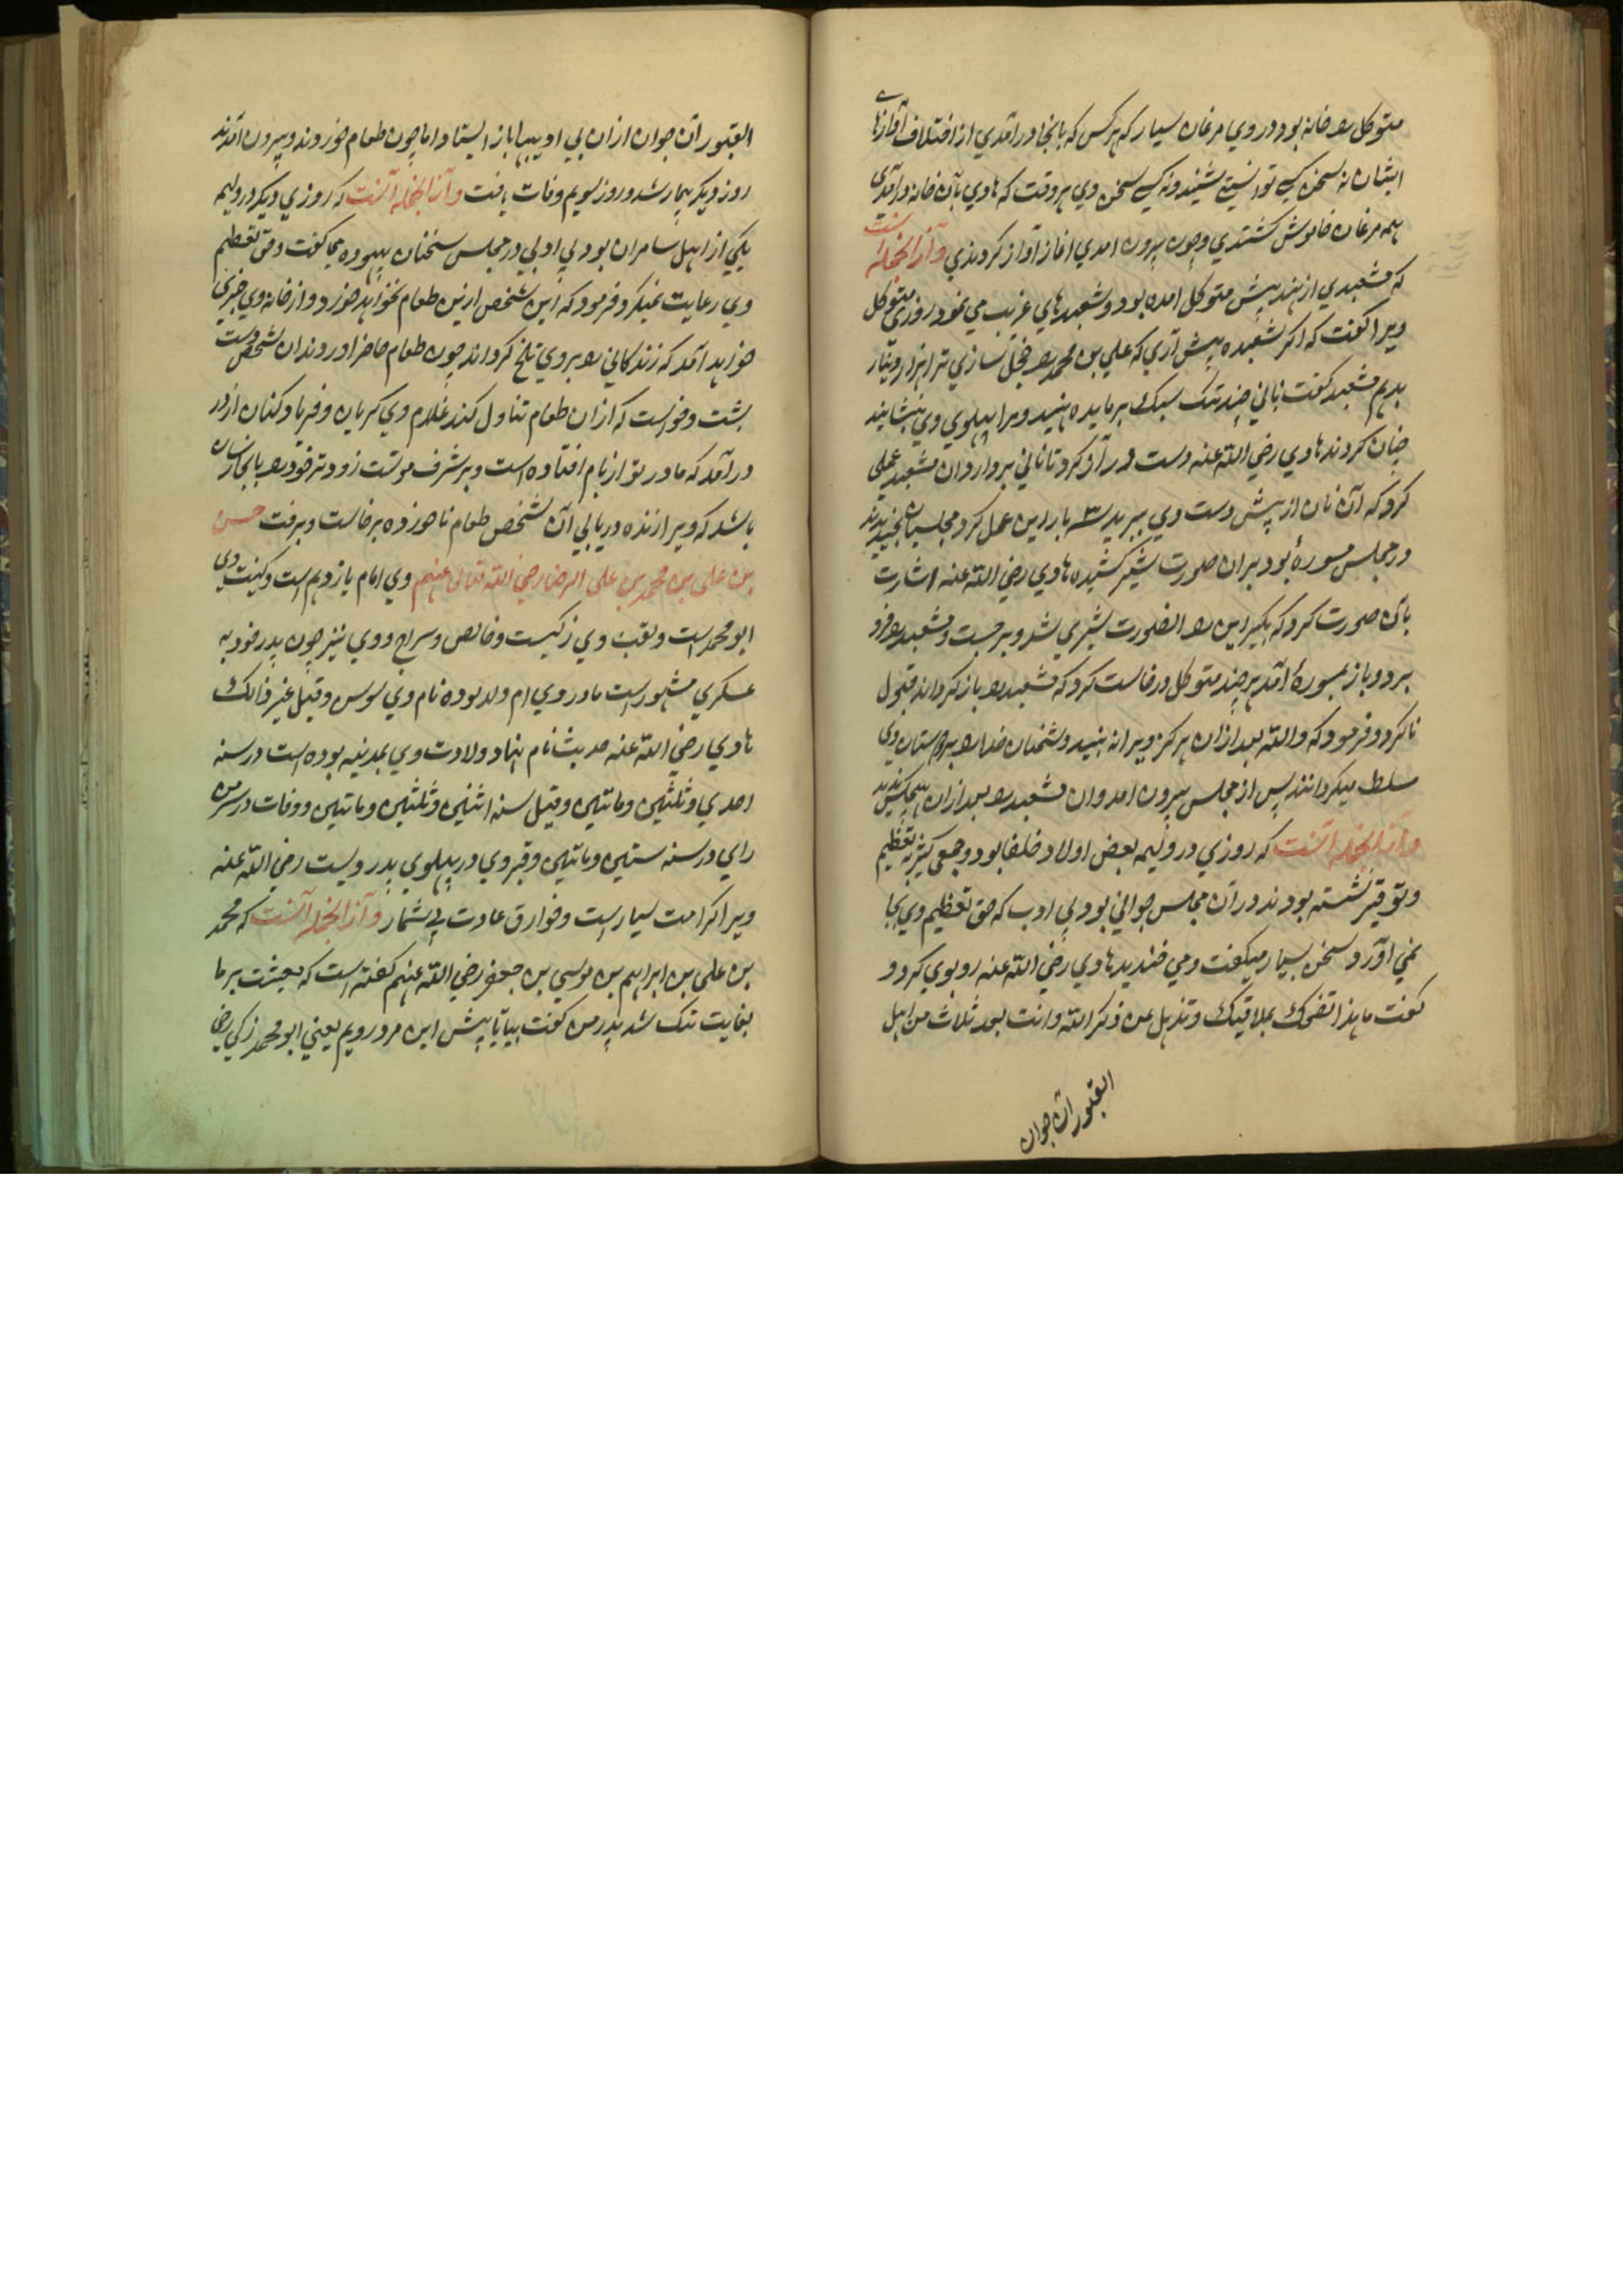 متوکل را خانهٔ بود در وی مرغان بسیار که هر کس که بانجا در آمدی از اختلاف آوازهای
ایشان نه سخن کسی توانستی شنید و نه کسی سخن وی هر وقت که هادی بآن خانه در آمدی
همه مرغان خاموش گشتندی و چون بیرون امدی اغاز آواز کردندی و آنرا لجمله آنست
که مشعبدی از هند پیش متوکل امده بود و شعبدهای غریب می نمود روزی متوکل
ویرا گفت که اگر شعبده پیش آری که علی بن محمد را خجل سازی ترا هزار دینار
بدهم مشعبد گفت نانی چند تنک سبک بر مایده بنهید و مرا پهلوی وی بنشانید
چنان کردند هادی رضی الله عنه دست در آز کرد تا نانی بردارد ان مشعبد عملی
کرد که آن نان از پیش دست وی بپرید سه بار این عمل کرد مجلسیان بخندیدند
در مجلس مسورهٔ بود بران صورت شیر کشیده هادی رضی الله عنه اشارت
بآن صورت کرد که بگیر این را الصورت شیری شد و برجست و مشعبد را فرو
برد و باز بمسورهٔ آمد هر چند متوکل درخاست کرد که مشعبد را باز گرداند قبول
ناکرد و فرمود که والله بعد ازان هرگز ویرا نه بینید دشمنان خدا را بر دوستان وی
مسلط میگردانند پس از مجلس بیرون امد و ان مشعبد را بعد ازان هیچکس ندید
و آنرا لجمله آنست که روزی در ولیمه بعض اولاد خلفا بود و جمعی کثیر به تعظیم
و توقیر نشسته بودند در آن مجلس جوانی بود بی ادب که حق تعظیم وی بجا
نمی آورد و سخن بسیار میگفت و می خندید هادی رضی الله عنه رو بوی کرد و
گفت ما هذا تضحک بملا فیک و تذهل عن ذکر الله و انت بعد ثلاث من اهل
القبور آن جوان
القبور آن جوان ازان بی ادبیها باز ایستاد اما چون طعام خوردند و بیرون آمدند
روز دیگر بیمار شد و روز سویم وفات یافت و آنرا لجمله آنست که روزی دیگر در ولیمه
یکی از اهل سامران بود بی ادبی در مجلس سخنان بیهوده میگفت و حق تعظیم
وی رعایت نمیکرد فرمود که این شخص ازین طعام نخواهد خورد و از خانه وی خبری
خواهد آمد که زندگانی را بر وی تلخ گرداند چون طعام حاضر اوردند ان شخص دست
بشت و خواست که ازان طعام تناول کند غلام وی گریان و فریاد کنان از در
در آمد که مادر تو از بام افتاده است و بر شرف موتست زودتر خود را بانجا رسان
باشد که ویرا زنده دریابی آن شخص طعام ناخورده برخاست و برفت حسن
بن علی بن محمد بن علی الرضا رضی الله تعالی عنهم وی امام یازدهم است و کنیت وی
ابو محمد است و لقب وی زکیست و خالص و سراج و وی نیز چون پدر خود به
عسکری مشهور است مادر وی ام ولد بوده نام وی سوسن و قیل غیر ذالک
هادی رضی الله عنه حدیث نام نهاد ولادت وی بمدینه بوده است در سنه
احدی و ثلثین و مائتین و قیل سنه اثنین و ثلثین و مائتین و وفات در سرمن
رای در سنه ستین و مائتین و قبر وی در پهلوی پدر ویست رضی الله عنه
ویرا کرامت بسیار است و خوارق عادت بی شمار و آنرا لجمله آنست که محمد
بن علی بن ابراهیم بن موسی بن جعفر رضی الله عنهم گفته است که معیشت بر ما
بغایت تنک شد پدر من گفت بیا تا پیش این مرد رویم یعنی ابو محمد زکی رضی